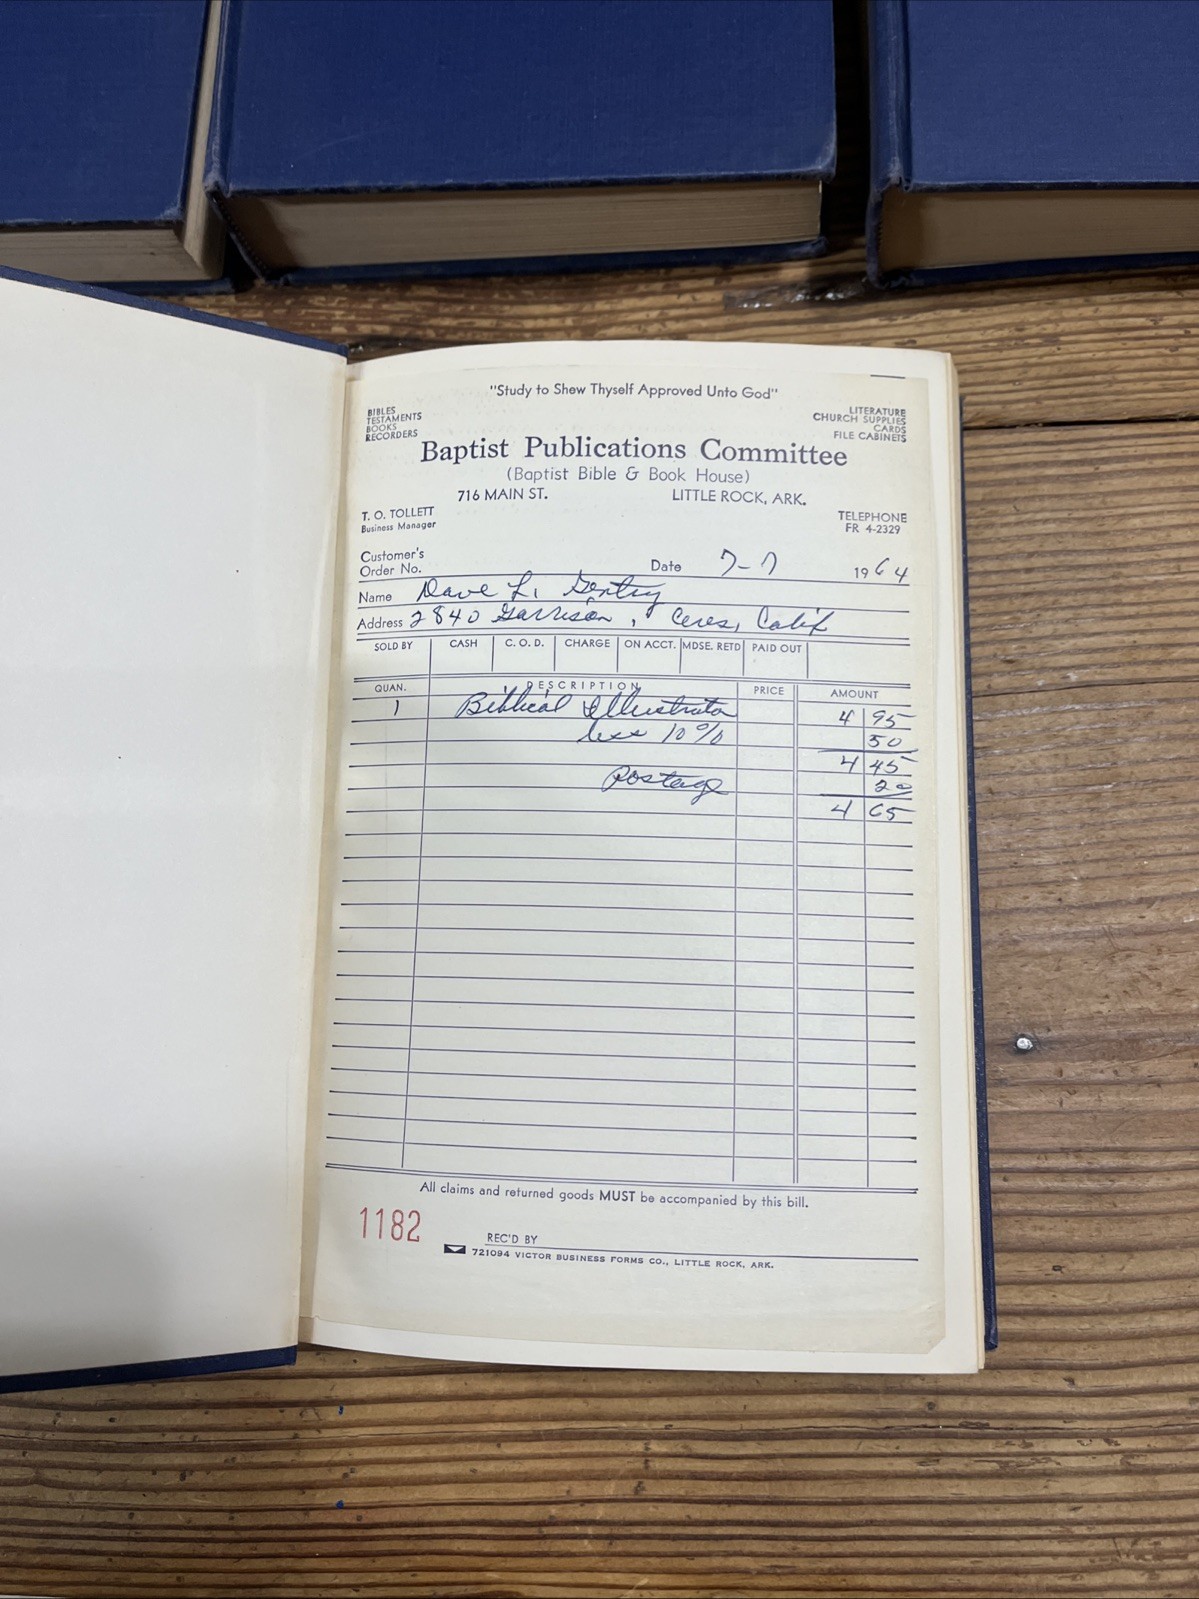 "Study to Shew Thyself Approved Unto God"
BIBLES
TESTAMENTS
BOOKS
RECORDERS
LITERATURE
CHURCH SUPPLIES
CARDS
FILE CABINETS
Baptist Publications Committee
(Baptist Bible & Book House)
716 MAIN ST. LITTLE ROCK, ARK.
T. O. TOLLETT
Business Manager
TELEPHONE
FR 4-2329
Customer's
Order No. Date 7-7 1964
Name Dave L. Gentry
Address 2840 Garrison, Ceres, Calif
SOLD BY CASH C. O. D. CHARGE ON ACCT. MDSE. RETD PAID OUT
QUAN. DESCRIPTION PRICE AMOUNT
1 Biblical Illustrator 4 95
less 10% 50
4 45
Postage 20
4 65
All claims and returned goods MUST be accompanied by this bill.
1182
REC'D BY
721094 VICTOR BUSINESS FORMS CO., LITTLE ROCK, ARK.